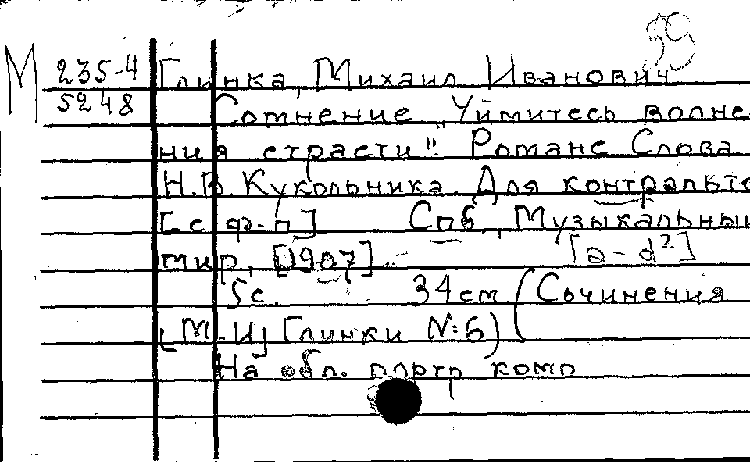 59
М 235-4 Глинка, Михаил Иванович
5248 Сомнение „Уймитесь волне
ния страсти". Романс Слова
Н.В. Кукольника. Для контральто
[с ф-п] Спб, Музыкальный
мир, [1907]. [a-d²]
5с. 34 см (Сочинения
[М.И] Глинки №6)
На обл. портр комп